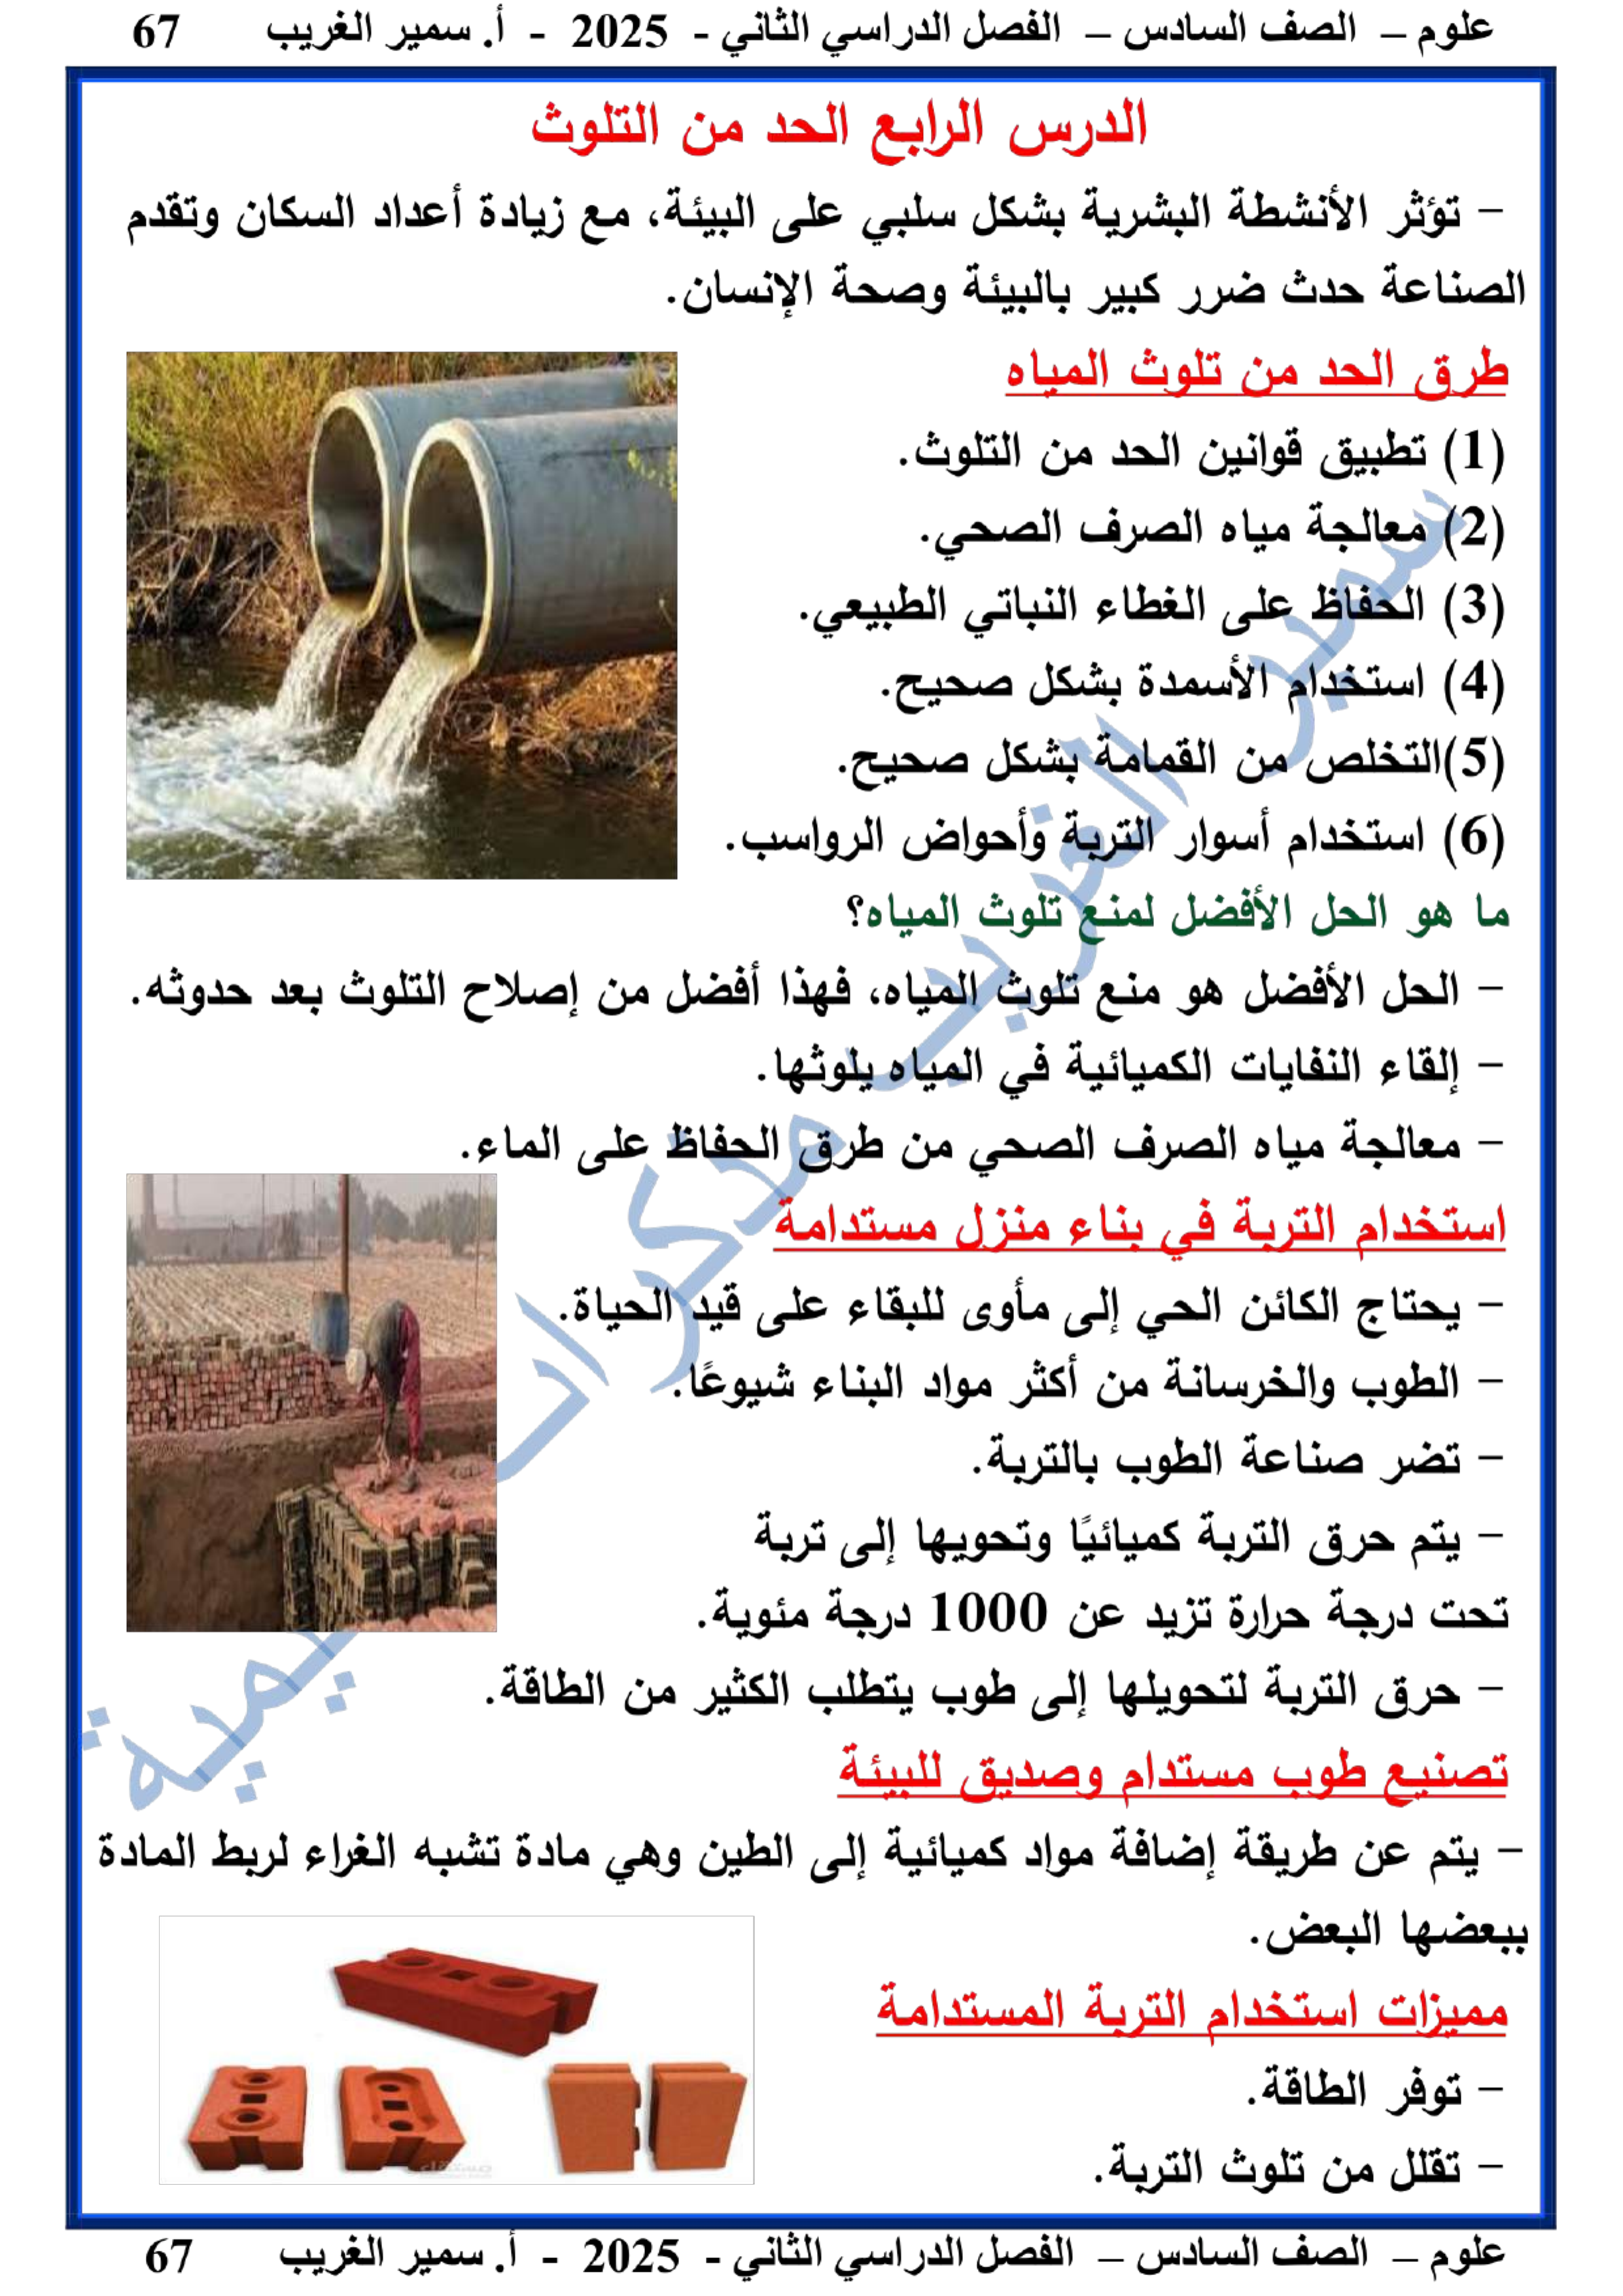 علوم – الصف السادس – الفصل الدراسي الثاني - 2025 - أ. سمير الغريب 67
الدرس الرابع الحد من التلوث
- تؤثر الأنشطة البشرية بشكل سلبي على البيئة، مع زيادة أعداد السكان وتقدم
الصناعة حدث ضرر كبير بالبيئة وصحة الإنسان.
طرق الحد من تلوث المياه
(1) تطبيق قوانين الحد من التلوث.
(2) معالجة مياه الصرف الصحي.
(3) الحفاظ على الغطاء النباتي الطبيعي.
(4) استخدام الأسمدة بشكل صحيح.
(5)التخلص من القمامة بشكل صحيح.
(6) استخدام أسوار التربة وأحواض الرواسب.
ما هو الحل الأفضل لمنع تلوث المياه؟
- الحل الأفضل هو منع تلوث المياه، فهذا أفضل من إصلاح التلوث بعد حدوثه.
- إلقاء النفايات الكميائية في المياه يلوثها.
- معالجة مياه الصرف الصحي من طرق الحفاظ على الماء.
استخدام التربة في بناء منزل مستدامة
- يحتاج الكائن الحي إلى مأوى للبقاء على قيد الحياة.
- الطوب والخرسانة من أكثر مواد البناء شيوعًا.
- تضر صناعة الطوب بالتربة.
- يتم حرق التربة كميائيًا وتحويها إلى تربة
تحت درجة حرارة تزيد عن 1000 درجة مئوية.
- حرق التربة لتحويلها إلى طوب يتطلب الكثير من الطاقة.
تصنيع طوب مستدام وصديق للبيئة
- يتم عن طريقة إضافة مواد كميائية إلى الطين وهي مادة تشبه الغراء لربط المادة
ببعضها البعض.
مميزات استخدام التربة المستدامة
- توفر الطاقة.
- تقلل من تلوث التربة.
علوم – الصف السادس – الفصل الدراسي الثاني - 2025 - أ. سمير الغريب 67
سمير الغريب مذكرات